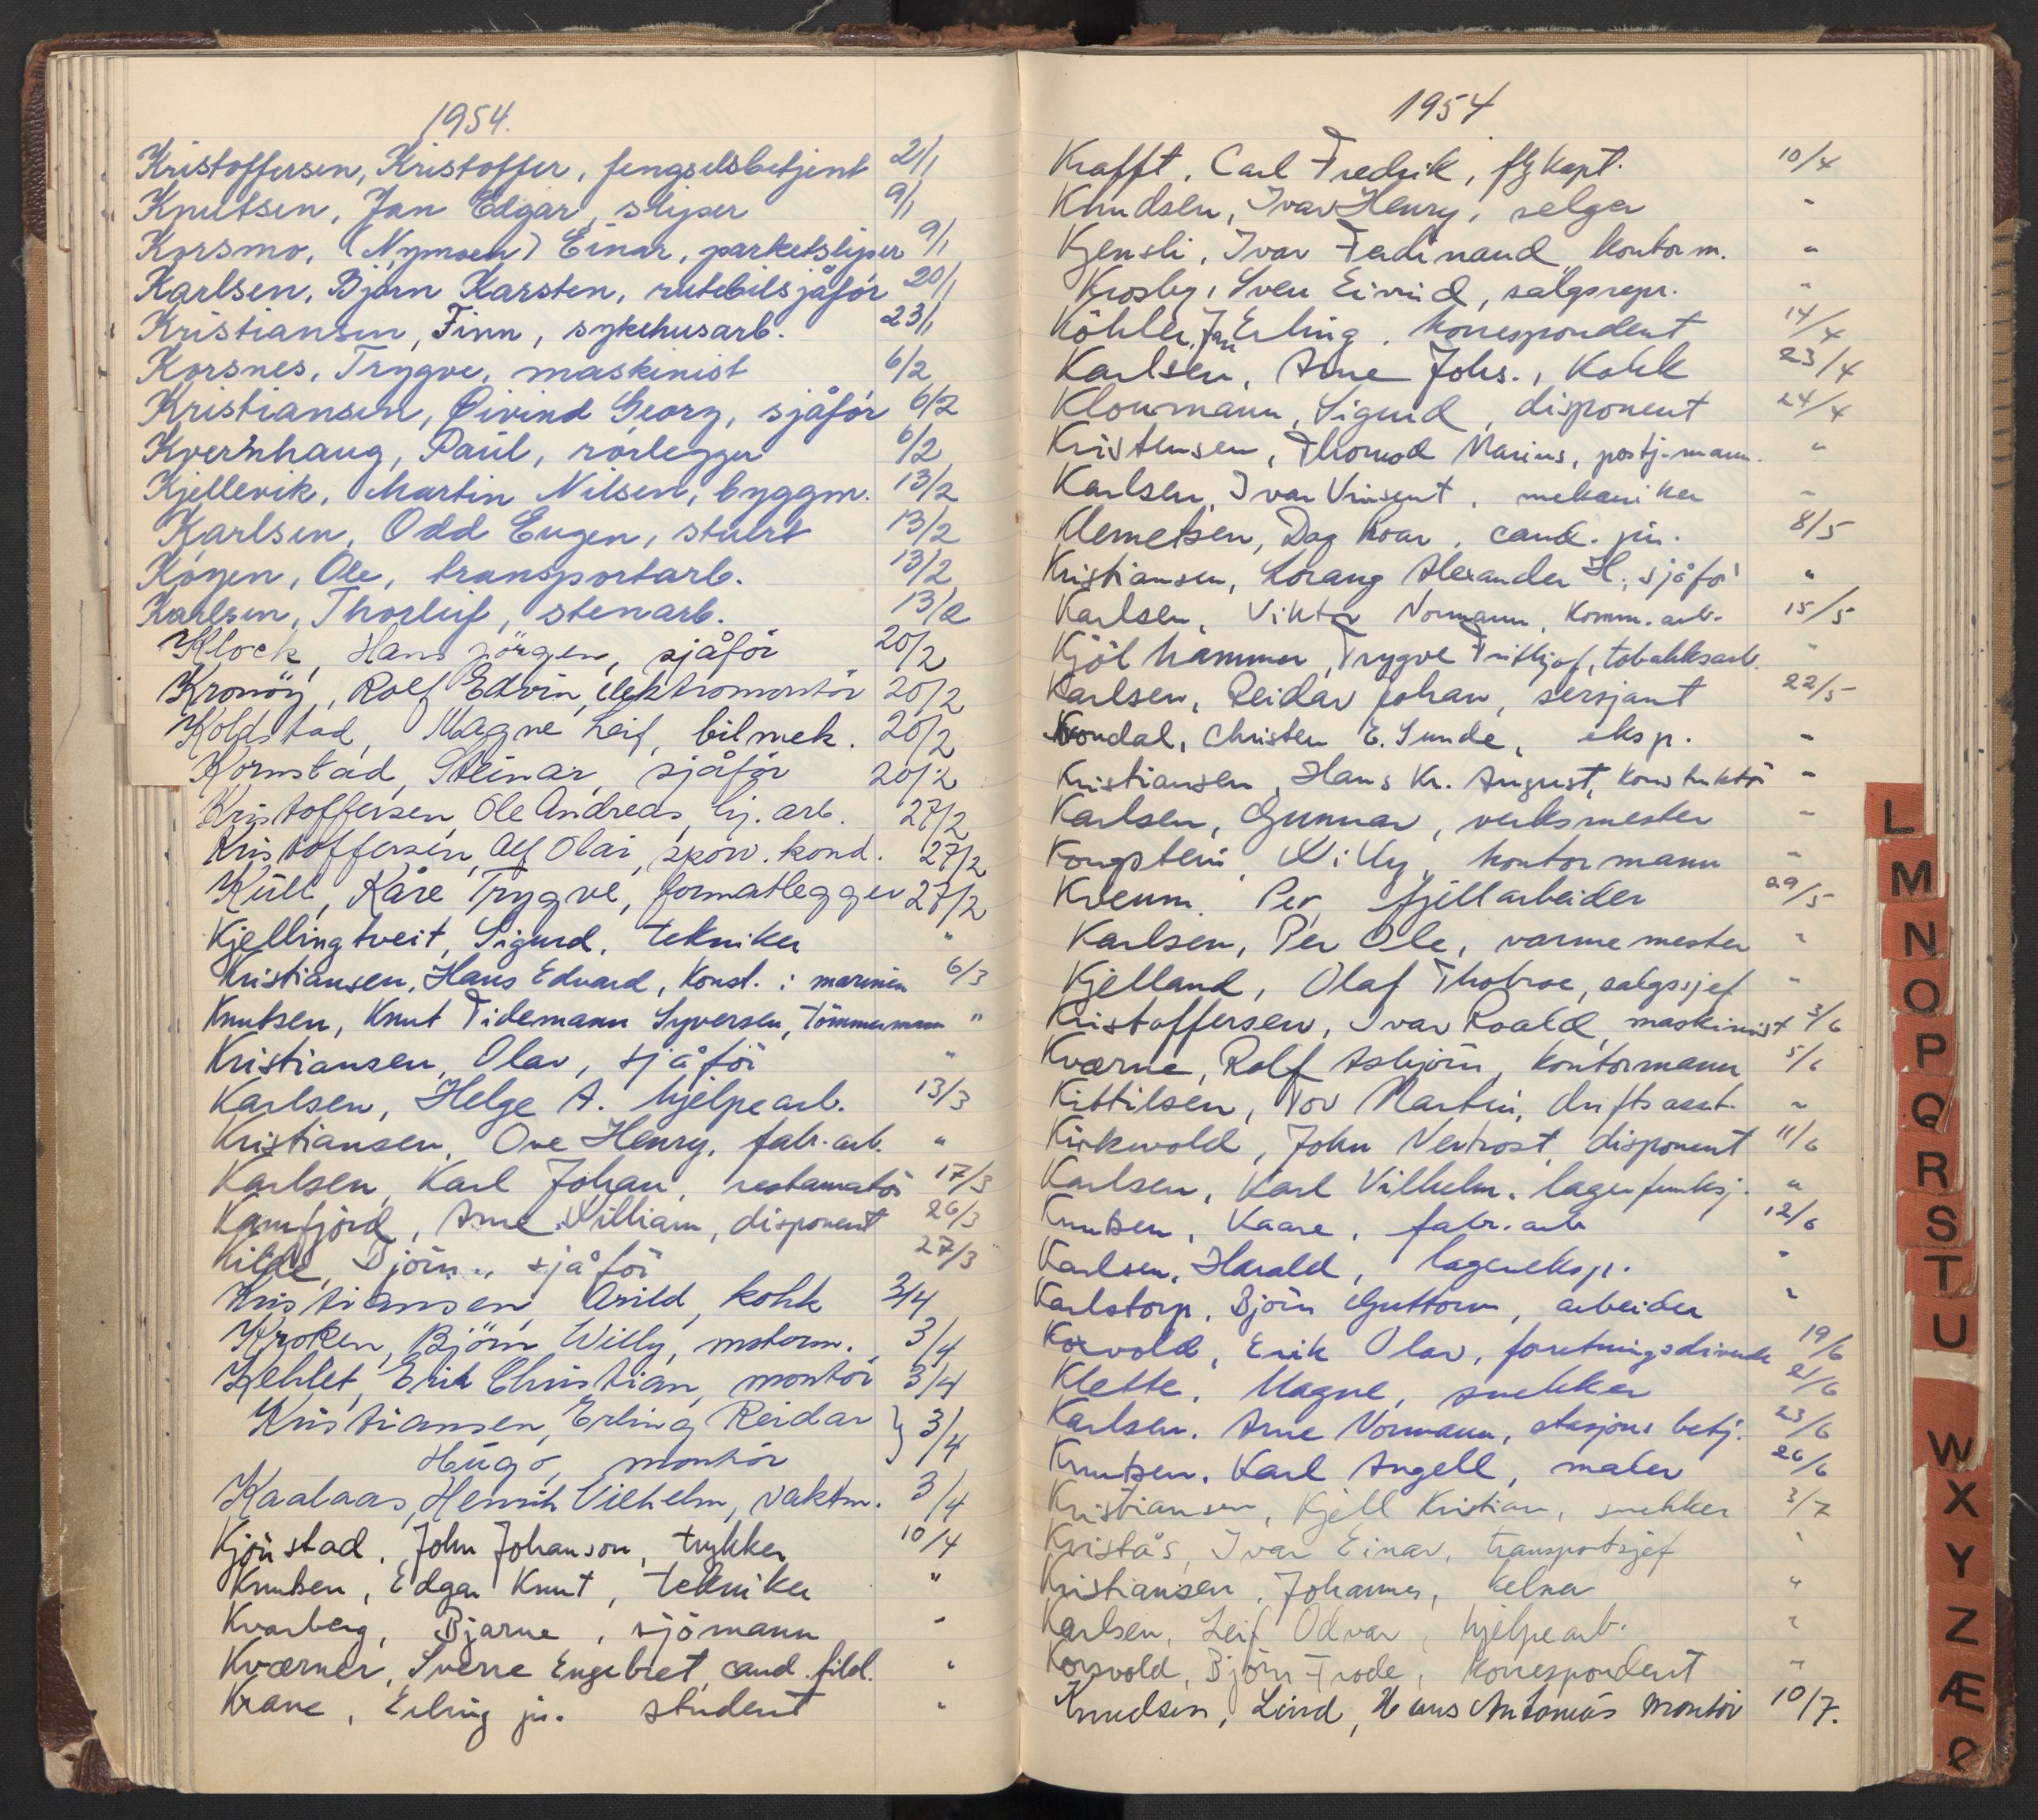 1954.
Kristoffersen, Kristoffer, fengselsbetjent 2/1
Knutsen, Jan Edgar, sliper 9/1
Korsmo, (Nymoen) Einar, parketsliper 9/1
Karlsen, Bjørn Karsten, rutebilsjåfør 20/1
Kristiansen, Finn, sykehusarb. 23/1
Korsnes, Trygve, maskinist 6/2
Kristiansen, Øivind Georg, sjåfør 6/2
Kvernhaug, Paul, rørlegger 6/2
Kjellevik, Martin Nilsen, byggm. 13/2
Karlsen, Odd Eugen, stuert 13/2
Køyen, Ole, transportarb. 13/2
Karlsen, Thorleif, stenarb. 13/2
Klock, Hans Jörgen, sjåför 20/2
Kronöy, Rolf Edvin, elektromontör 20/2
Koldstad, Magne Leif, bilmek. 20/2
Kornstad, Steinar, sjåför 20/2
Kristoffersen, Ole Andreas, hj. arb. 27/2
Kristoffersen, Alf Olai, sporv. kond. 27/2
Küll, Kåre Trygve, formatlegger 27/2
Kjellingtveit, Sigurd, tekniker "
Kristiansen, Hans Edvard, Konst. i marinen 6/3
Knutsen, Knut Tidemann Syversen, Tömmermann "
Kristiansen, Olav, sjåför "
Karlsen, Helge A. hjelpearb. 13/3
Kristiansen, Ove Henry, fabr. arb. "
Karlsen, Karl Johan, restauratör 17/3
Kamfjord, Arne William, disponent 26/3
Kilde, Björn, sjåför 27/3
Kristiansen, Arild, kokk 3/4
Kroken, Björn Willy, motorm. 3/4
Kehlet, Erik Christian, montör 3/4
Kristiansen, Erling Reidar } 3/4
Hugo, montör
Kaalaas, Henrik Vilhelm, vaktm. 3/4
Kjönstad, John Johanson, trykker 10/4
Knutsen, Edgar Knut, tekniker "
Kvarberg, Bjarne, sjömann "
Kværner, Sverre Engebret, cand. filol. "
Krane, Erling jr. student "
1954
Krafft, Carl Fredrik, flykapt. 10/4
Knudsen, Ivar Henry, selger "
Kjensli, Ivar Ferdinand, kontorm. "
Krosby, Sven Eivind, salgsrepr. "
Köhler, Jan Erling, korrespondent 14/4
Karlsen, Arne Johs., Kokk 23/4
Kloumann, Sigurd, disponent 24/4
Kristensen, Thomod Marius, postj.mann. "
Karlsen, Ivar Vinsent, mekaniker "
Klemetsen, Dag Roar, cand. jur. 8/5
Kristiansen, Lorang Alexander H., sjåför "
Karlsen, Viktor Normann, Komm. arb. 15/5
Kjölhammer, Trygve Fritjof, tobakksarb. "
Karlsen, Reidar Johan, sersjant 22/5
Christen E. Sunde, eksp. "
Kristiansen, Hans Kr. August, Konstruktör "
Karlsen, Gunnar, verksmester "
Kongstein, Willy, kontormann "
Kvenm, Per, fjellarbeider 29/5
Karlsen, Per Ole, varmemester "
Kjelland, Olaf Thobroe, salgssjef "
Kristoffersen, Ivar Roald, maskinist 3/6
Kværne, Rolf Asbjörn, kontormann 5/6
Kittilsen, Tov Martin, driftsasst. "
Kirkevold, John Nertrost, disponent 11/6
Karlsen, Karl Vilhelm, lagerfunksj. "
Knutsen, Kaare, fabr. arb. 12/6
Karlsen, Harald, lagereksp. "
Karlstorp, Björn Guttorm, arbeider "
Korvold, Erik Olav, forretningsdrivende 19/6
Klette, Magne, snekker 21/6
Karlsen, Arne Normann, stasjons betj. 23/6
Knutsen, Karl Angell, maler 26/6
Kristiansen, Kjell Kristian, snekker 3/7
Kvistås, Ivar Einar, transportsjef "
Kristiansen, Johannes, kelner "
Karlsen, Leif Odvar, hjelpearb. "
Korsvold, Björn Frode, korrespondent "
Knudsen, Lind, Hans Antonius Montör 10/7.
L
M
N
O
P
Q
R
S
T
U
W
X
Y
Z
Æ
Ø